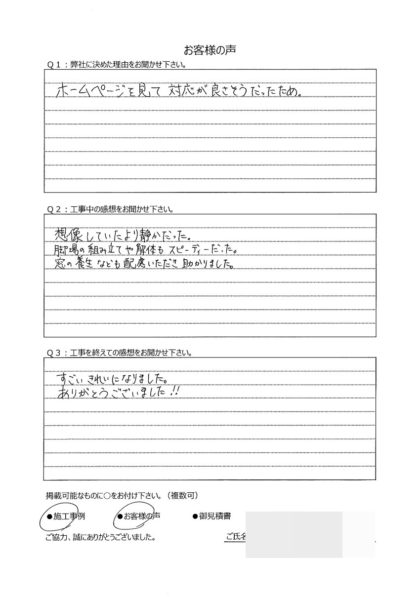 お客様の声
Q1：弊社に決めた理由をお聞かせ下さい。
ホームページを見て 対応が良さそうだったため。
Q2：工事中の感想をお聞かせ下さい。
想像していたより静かだった。
脚場の組み立てや解体も スピーディーだった。
窓の養生なども配慮いただき 助かりました。
Q3：工事を終えての感想をお聞かせ下さい。
すごい きれいになりました。
ありがとうございました!!
掲載可能なものに○をお付け下さい。（複数可）
●施工事例 ●お客様の声 ●御見積書
ご協力、誠にありがとうございました。 ご氏名